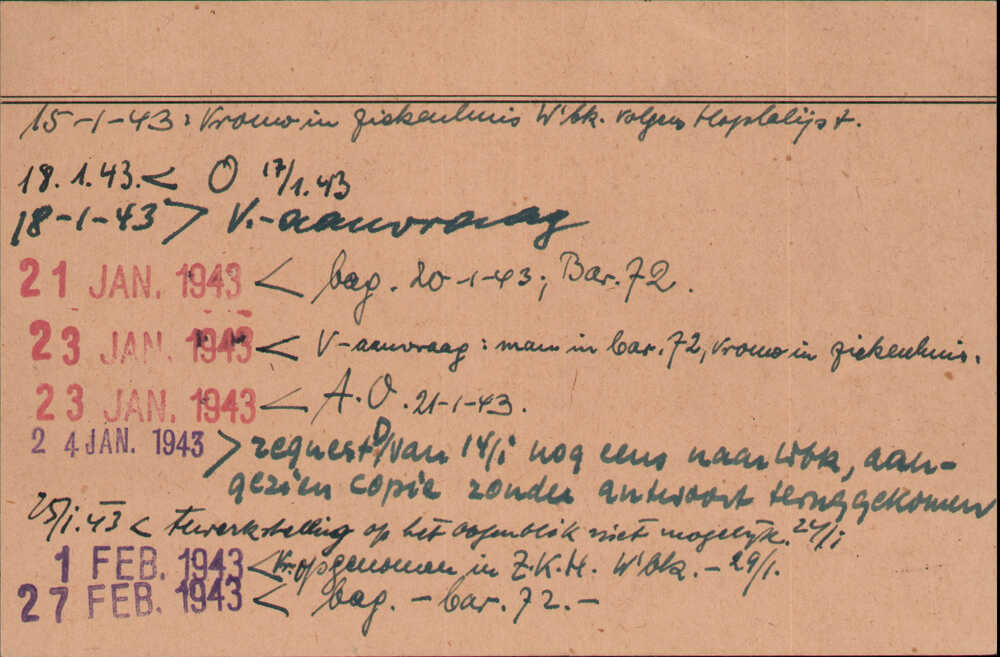 15-1-43: Vrouw in ziekenhuis W'bk. volgens Hosplijst.
18.1.43. < O 17/1.43
18-1-43 > V.-aanvraag
21 JAN. 1943 < bag. 20-1-43; Bar. 72.
23 JAN. 1943 < V-aanvraag: man in bar. 72, vrouw in ziekenhuis.
23 JAN. 1943 < A.O. 21-1-43.
24 JAN. 1943 > request van 14/1 nog eens naar Wbk, aan-
gezien copie zonder antwoort teruggekomen
25/1.43 < Tewerkstelling op het oogenblik niet mogelijk. 24/1
1 FEB. 1943 < Vr. opgenomen in Z.K.H. W'bk. - 29/1.
27 FEB. 1943 < bag. - bar. 72. -